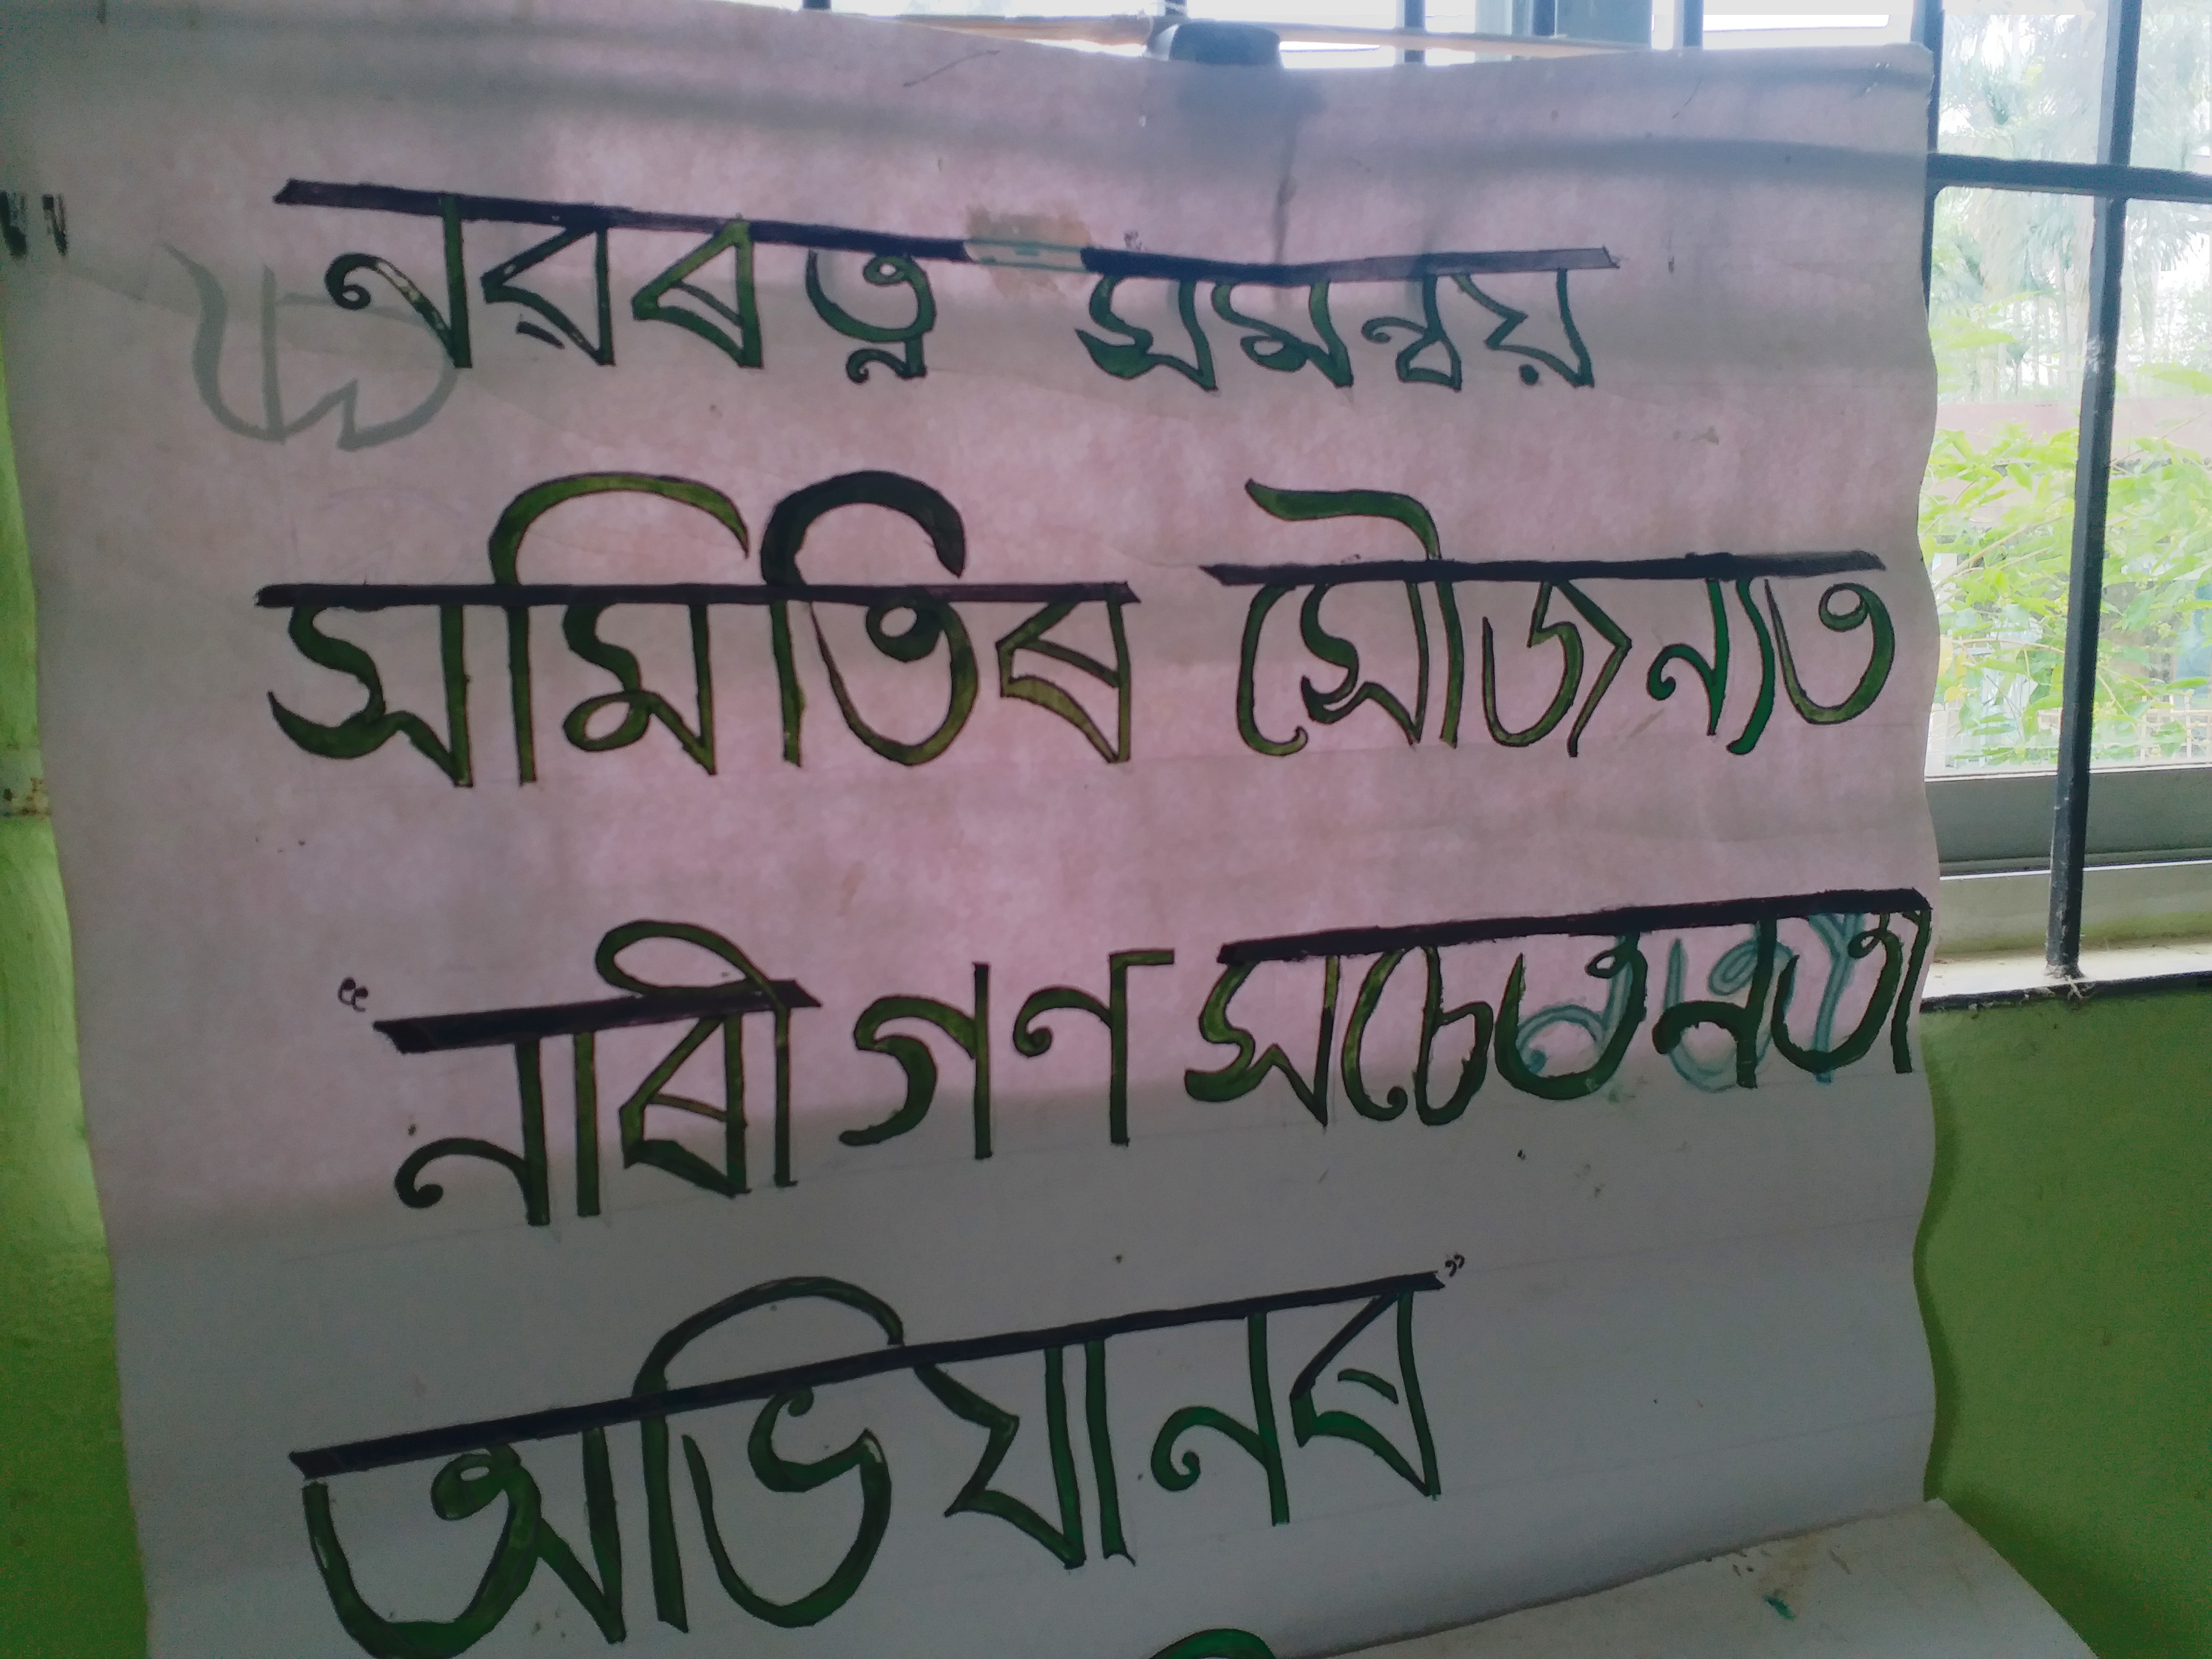 নৱৰত্ন সমন্বয়
সমিতিৰ সৌজন্যত
“নাৰী গণ সচেতনতা
অভিযানৰ”